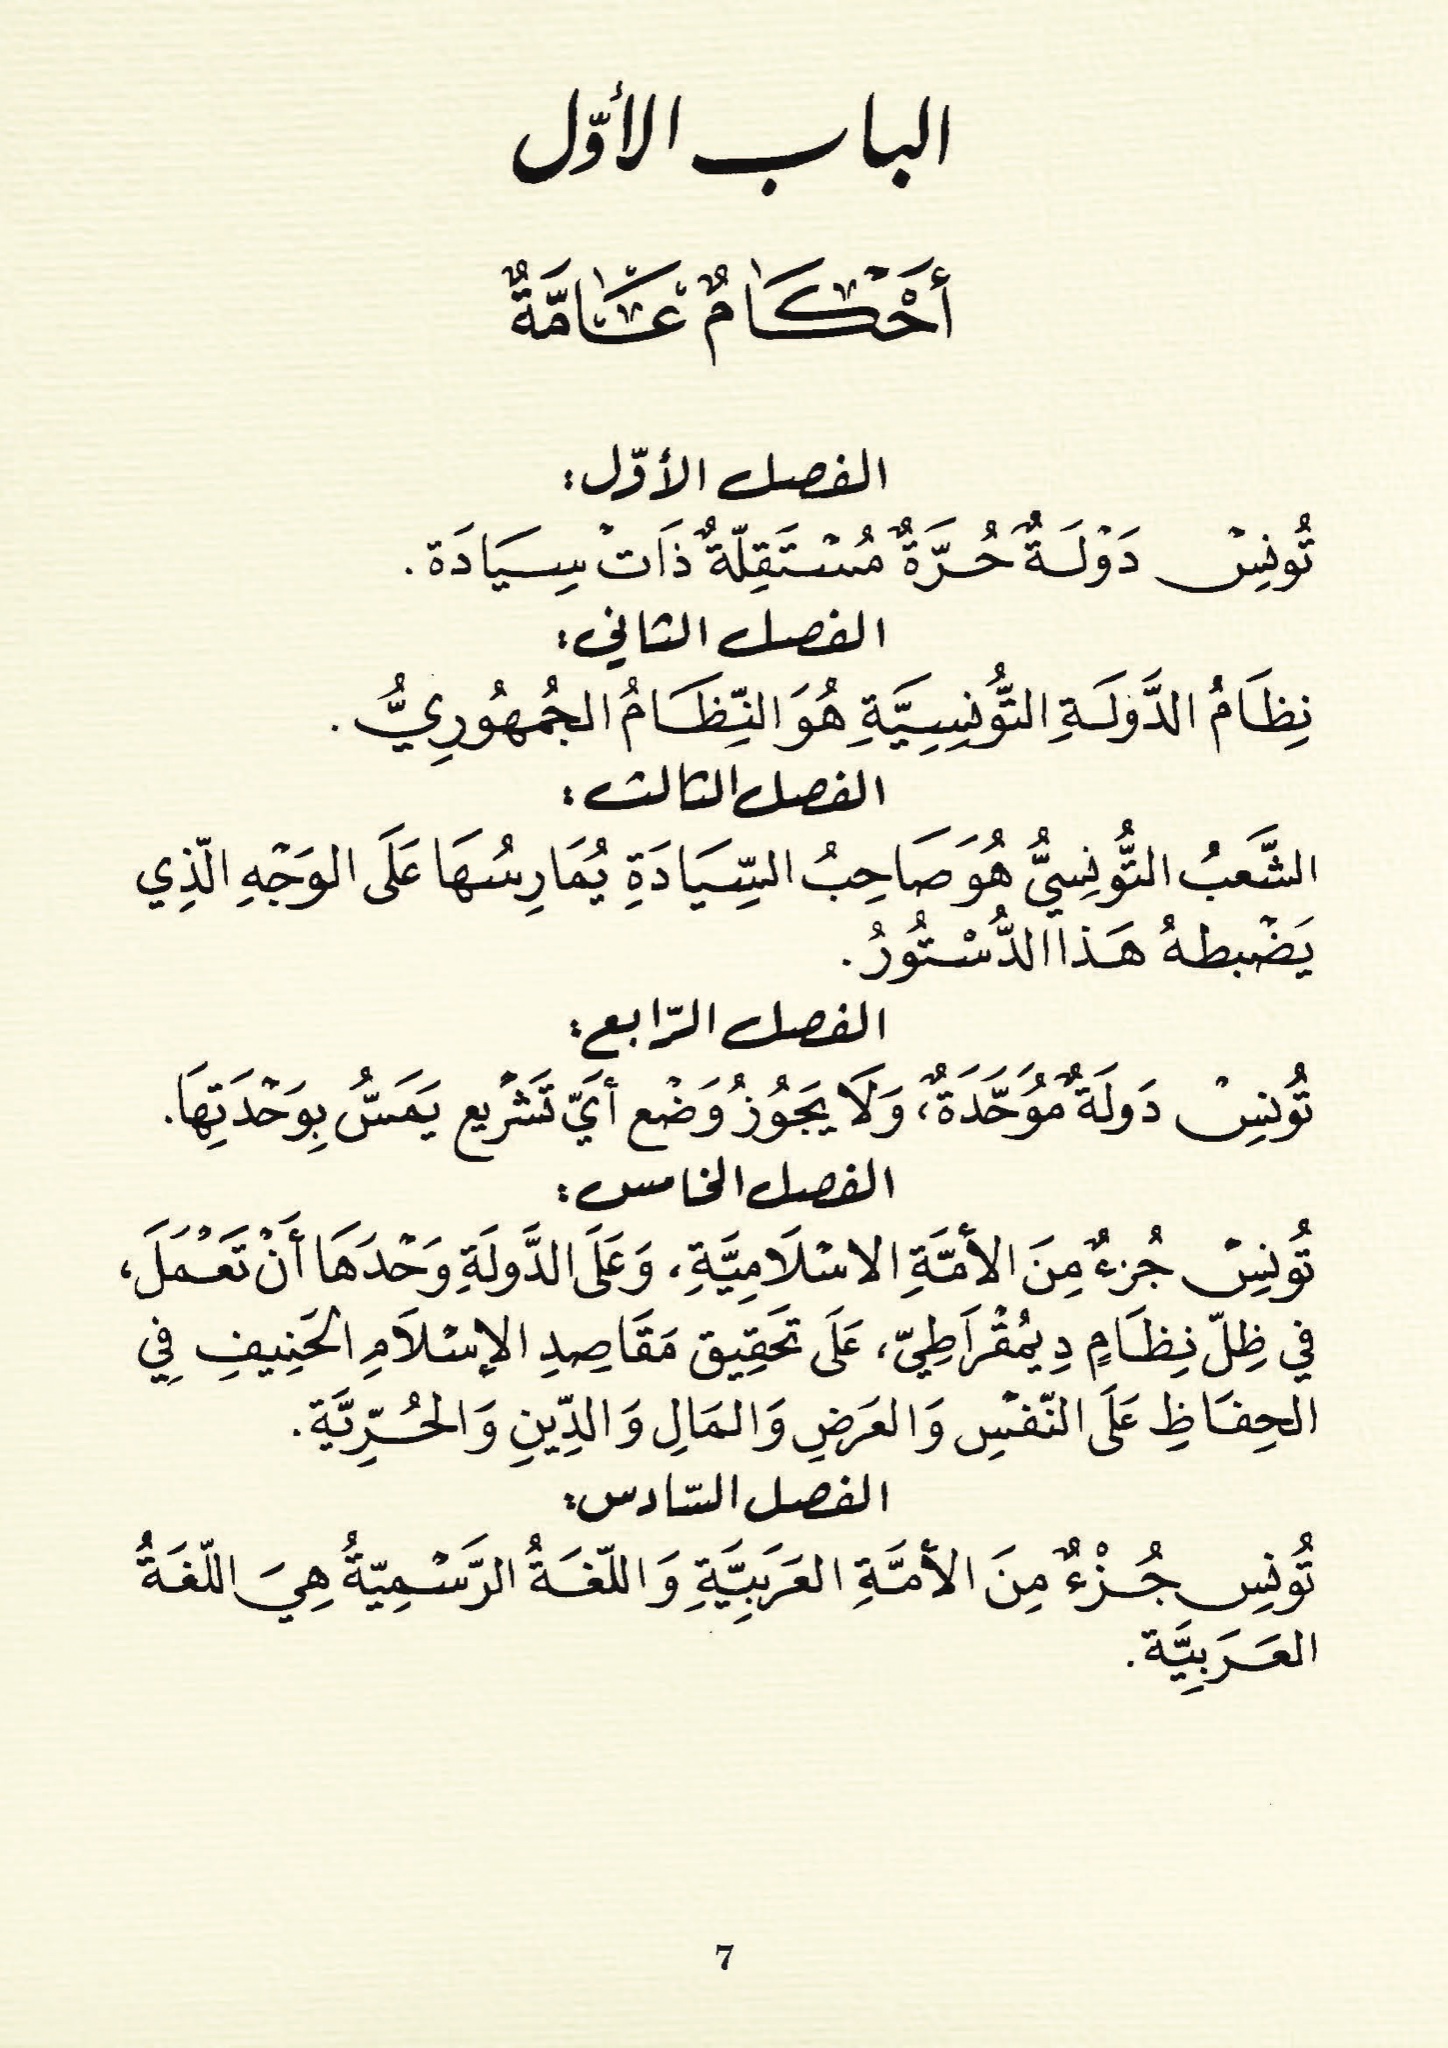 الباب الأوّل
أَحْكَامٌ عَامَّةٌ
الفصل الأوّل:
تُونِسْ دَوْلَةٌ حُرَّةٌ مُسْتَقِلَّةٌ ذَاتْ سِيَادَة.
الفصل الثاني:
نِظَامُ الدَّوْلَةِ التُّونِسِيَّةِ هُوَ النِّظَامُ الجُمهُورِيُّ.
الفصل الثالث:
الشَّعبُ التُّونِسيُّ هُوَ صَاحِبُ السِّيَادَةِ يُمَارِسُهَا عَلَى الوَجْهِ الّذِي
يَضْبطهُ هَذا الدُّسْتُورُ.
الفصل الرّابع:
تُونِسْ دَولَةٌ مُوَحَّدَةٌ، وَلَا يَجُوزُ وَضْع أيّ تَشْرِيع يَمَسُّ بِوَحْدَتِهَا.
الفصل الخامس:
تُونِسْ جُزءٌ مِنَ الأمَّةِ الاسْلَامِيَّةِ، وَعَلَى الدَّولَةِ وَحْدَهَا أَنْ تَعْمَلَ،
في ظِلّ نِظَامٍ دِيمُقْرَاطِيّ، عَلَى تَحَقِيق مَقَاصِدِ الإسْلَامِ الحَنِيفِ فِي
الحِفَاظِ عَلَى النّفسِ وَالعَرضِ وَالمَالِ وَالدِّينِ وَالحُرِّيَّة.
الفصل السّادس:
تُونِس جُزْءٌ مِنَ الأمَّةِ العَرَبِيَّةِ وَاللّغَةُ الرَّسْمِيّةُ هِيَ اللّغَةُ
العَرَبِيَّة.
7